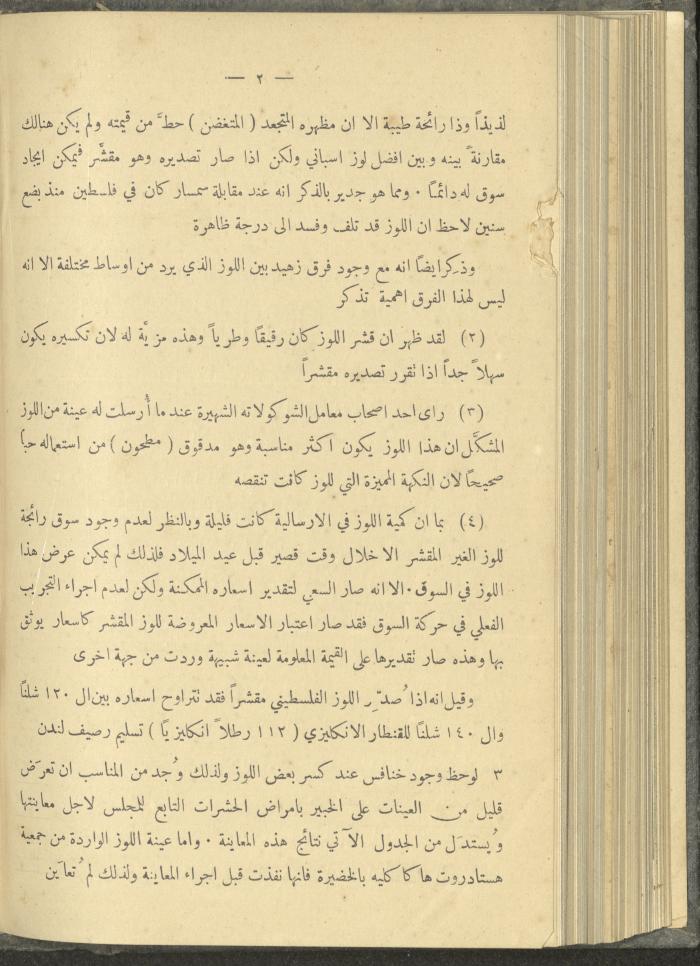 — ٢ —
لذيذاً وذا رائحة طيبة الا ان مظهره المتجعد ( المتغضن ) حطَّ من قيمته ولم يكن هنالك
مقارنةً بينه وبين افضل لوز اسباني ولكن اذا صار تصديره وهو مقشَّر فيمكن ايجاد
سوق له دائمًا ٠ ومما هو جدير بالذكر انه عند مقابلة سمسار كان في فلسطين منذ بضع
سنين لاحظ ان اللوز قد تلف وفسد الى درجة ظاهرة
وذكر ايضًا انه مع وجود فرق زهيد بين اللوز الذي يرد من اوساط مختلفة الا انه
ليس لهذا الفرق اهمية تذكر
(٢) لقد ظهر ان قشر اللوز كان رقيقًا وطرياً وهذه مزيَّة له لان تكسيره يكون
سهلاً جداً اذا تقرر تصديره مقشراً
(٣) راى احد اصحاب معامل الشوكولاته الشهيرة عند ما أُرسلت له عينة من اللوز
المشكَّل ان هذا اللوز يكون اكثر مناسبة وهو مدقوق ( مطحون ) من استعماله حبا
صحيحًا لان النكهة المميزة التي للوز كافت تنقصه
(٤) بما ان كمية اللوز في الارسالية كانت قليلة وبالنظر لعدم وجود سوق رائجة
للوز الغير المقشر الا خلال وقت قصير قبل عيد الميلاد فلذلك لم يمكن عرض هذا
اللوز في السوق ٠ الا انه صار السعي لتقدير اسعاره الممكنة ولكن لعدم اجراء التجريب
الفعلي في حركة السوق فقد صار اعتبار الاسعار المعروضة للوز المقشر كاسعار يوثق
بها وهذه صار تقديرها على القيمة المعلومة لعينة شبيهة وردت من جهة اخرى
وقيل انه اذا صُدِّر اللوز الفلسطيني مقشراً فقد تتراوح اسعاره بين ال ١٢٠ شلنًا
وال ١٤٠ شلنًا للقنطار الانكليزي ( ١١٢ رطلاً انكليزيًا ) تسليم رصيف لندن
٣ لوحظ وجود خنافس عند كسر بعض اللوز ولذلك وُجد من المناسب ان تعرَض
قليل من العينات على الخبير بامراض الحشرات التابع للمجلس لاجل معاينتها
ويُستدَل من الجدول الآتي نتائج هذه المعاينة ٠ واما عينة اللوز الواردة من جمعية
هستادروت هاكاكليه بالخضيرة فانها نفذت قبل اجراء المعاينة ولذلك لم تُعايَن